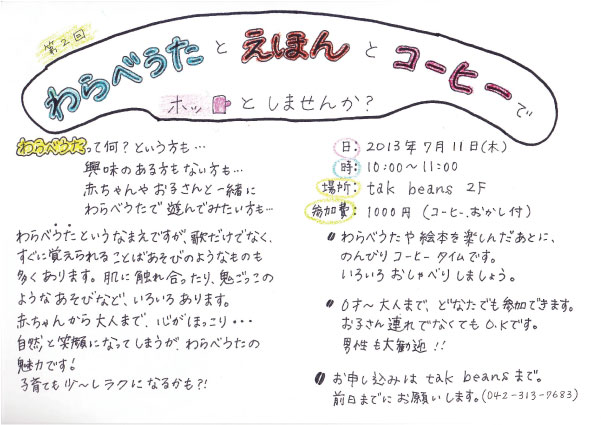 第2回
わらべうた と えほん と コーヒー で
ホッ と しませんか?
わらべうたって何?という方も…
興味のある方もない方も…
赤ちゃんやお子さんと一緒に
わらべうたで遊んでみたい方も…
わらべうたというなまえですが、歌だけでなく、
すぐに覚えられることばあそびのようなものも
多くあります。肌に触れ合ったり、鬼ごっこの
ようなあそびなど、いろいろあります。
赤ちゃんから大人まで、心がほっこり・・・
自然と笑顔になってしまうが、わらべうたの
魅力です!
子育ても少〜しラクになるかも?!
日:2013年7月11日(木)
時:10:00〜11:00
場所:tak beans 2F
参加費:1000円(コーヒー、おかし付)
わらべうたや絵本を楽しんだあとに、
のんびりコーヒータイムです。
いろいろおしゃべりしましょう。
0才〜大人まで、どなたでも参加できます。
お子さん連れでなくてもO.Kです。
男性も大歓迎!!
お申し込みは tak beansまで。
前日までにお願いします。(042-313-7683)